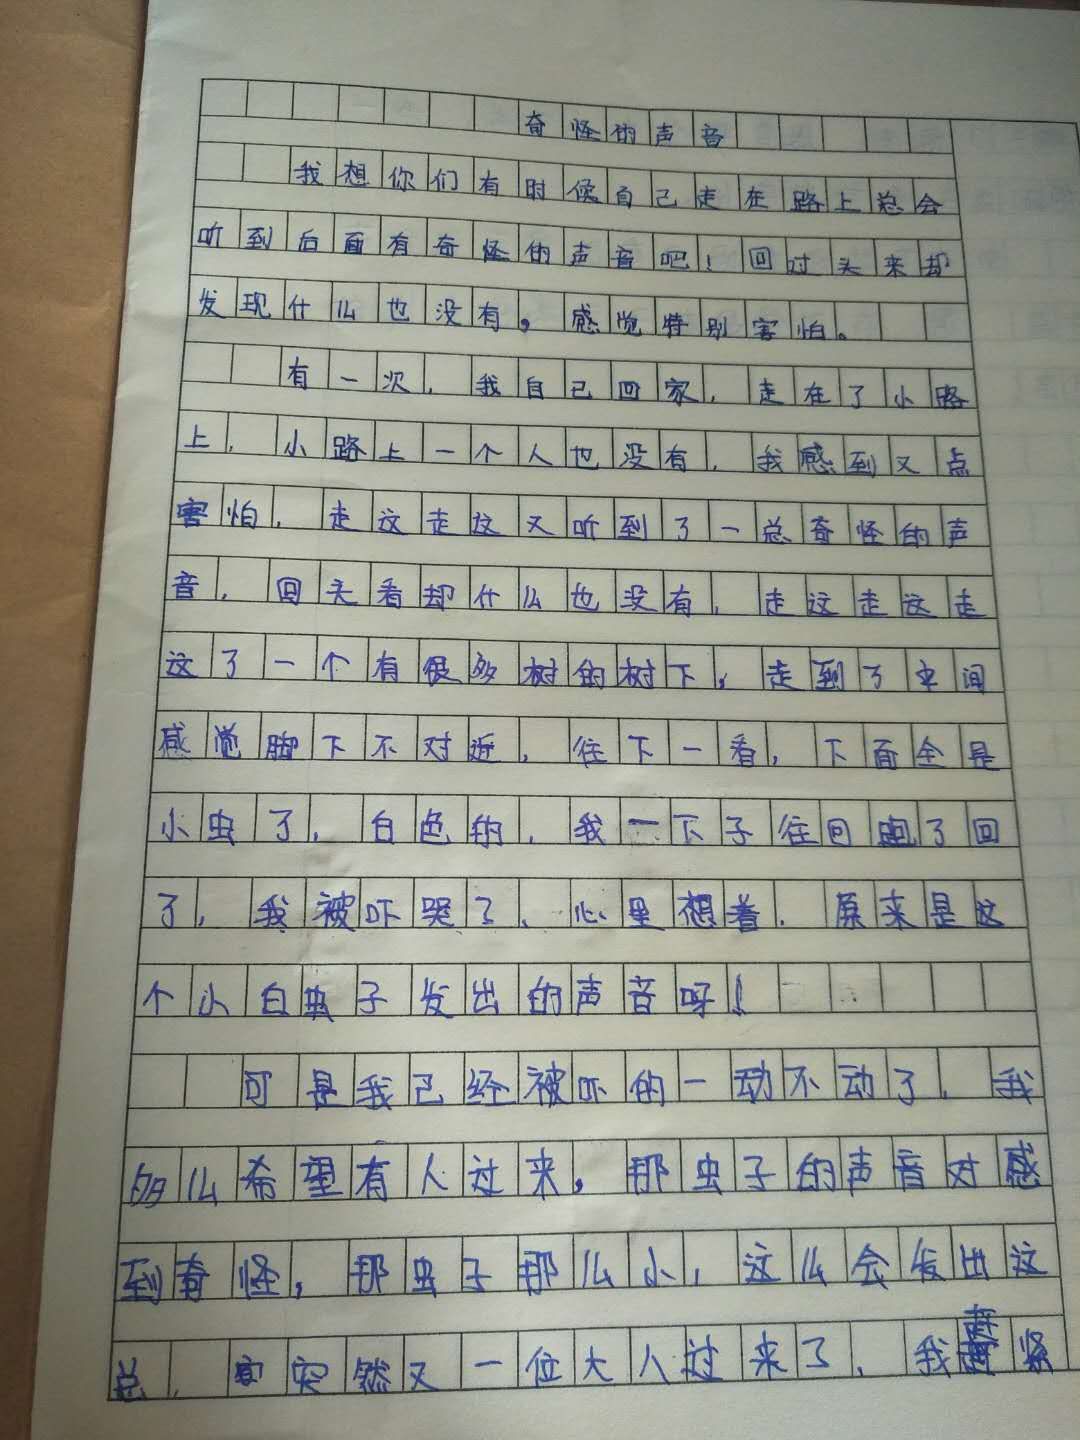 奇怪的声音
我想你们有时候自己走在路上总会
听到后面有奇怪的声音吧！回过头来却
发现什么也没有。感觉特别害怕。
有一次，我自己回家，走在了小路
上，小路上一个人也没有，我感到又点
害怕，走这走这又听到了一总奇怪的声
音，回头看却什么也没有，走这走这走
这了一个有很多树的树下，走到了中间
感觉脚下不对近，往下一看，下面全是
小虫了，白色的，我一下子往回跑了回
了，我被吓哭了、心里想着．原来是这
个小白虫子发出的声音呀！
可是我已经被吓的一动不动了．我
多么希望有人过来。那虫子的声音对感
到奇怪，那虫子那么小，这么会发出这
总，突然又一位大人过来了，我赶紧